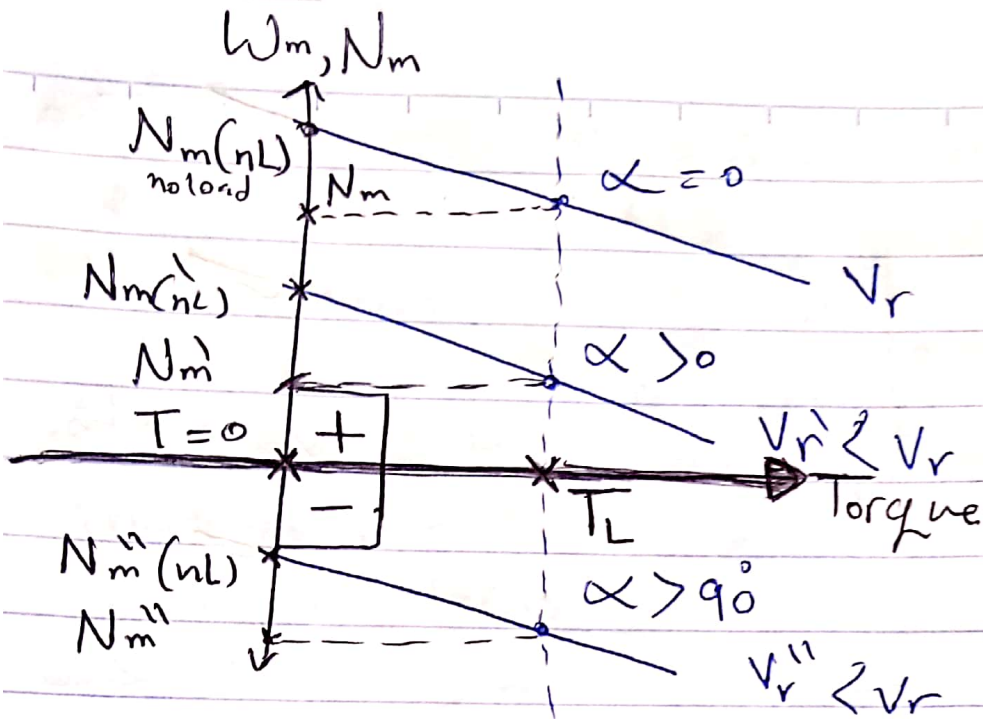 Wm, Nm
Nm(nL)
no load
Nm
α = 0
Vr
Nm(nL)`
α > 0
Nm`
T = 0
+
Vr` < Vr
-
TL
Torque
Nm"(nL)
α > 90°
Nm"
Vr" < Vr